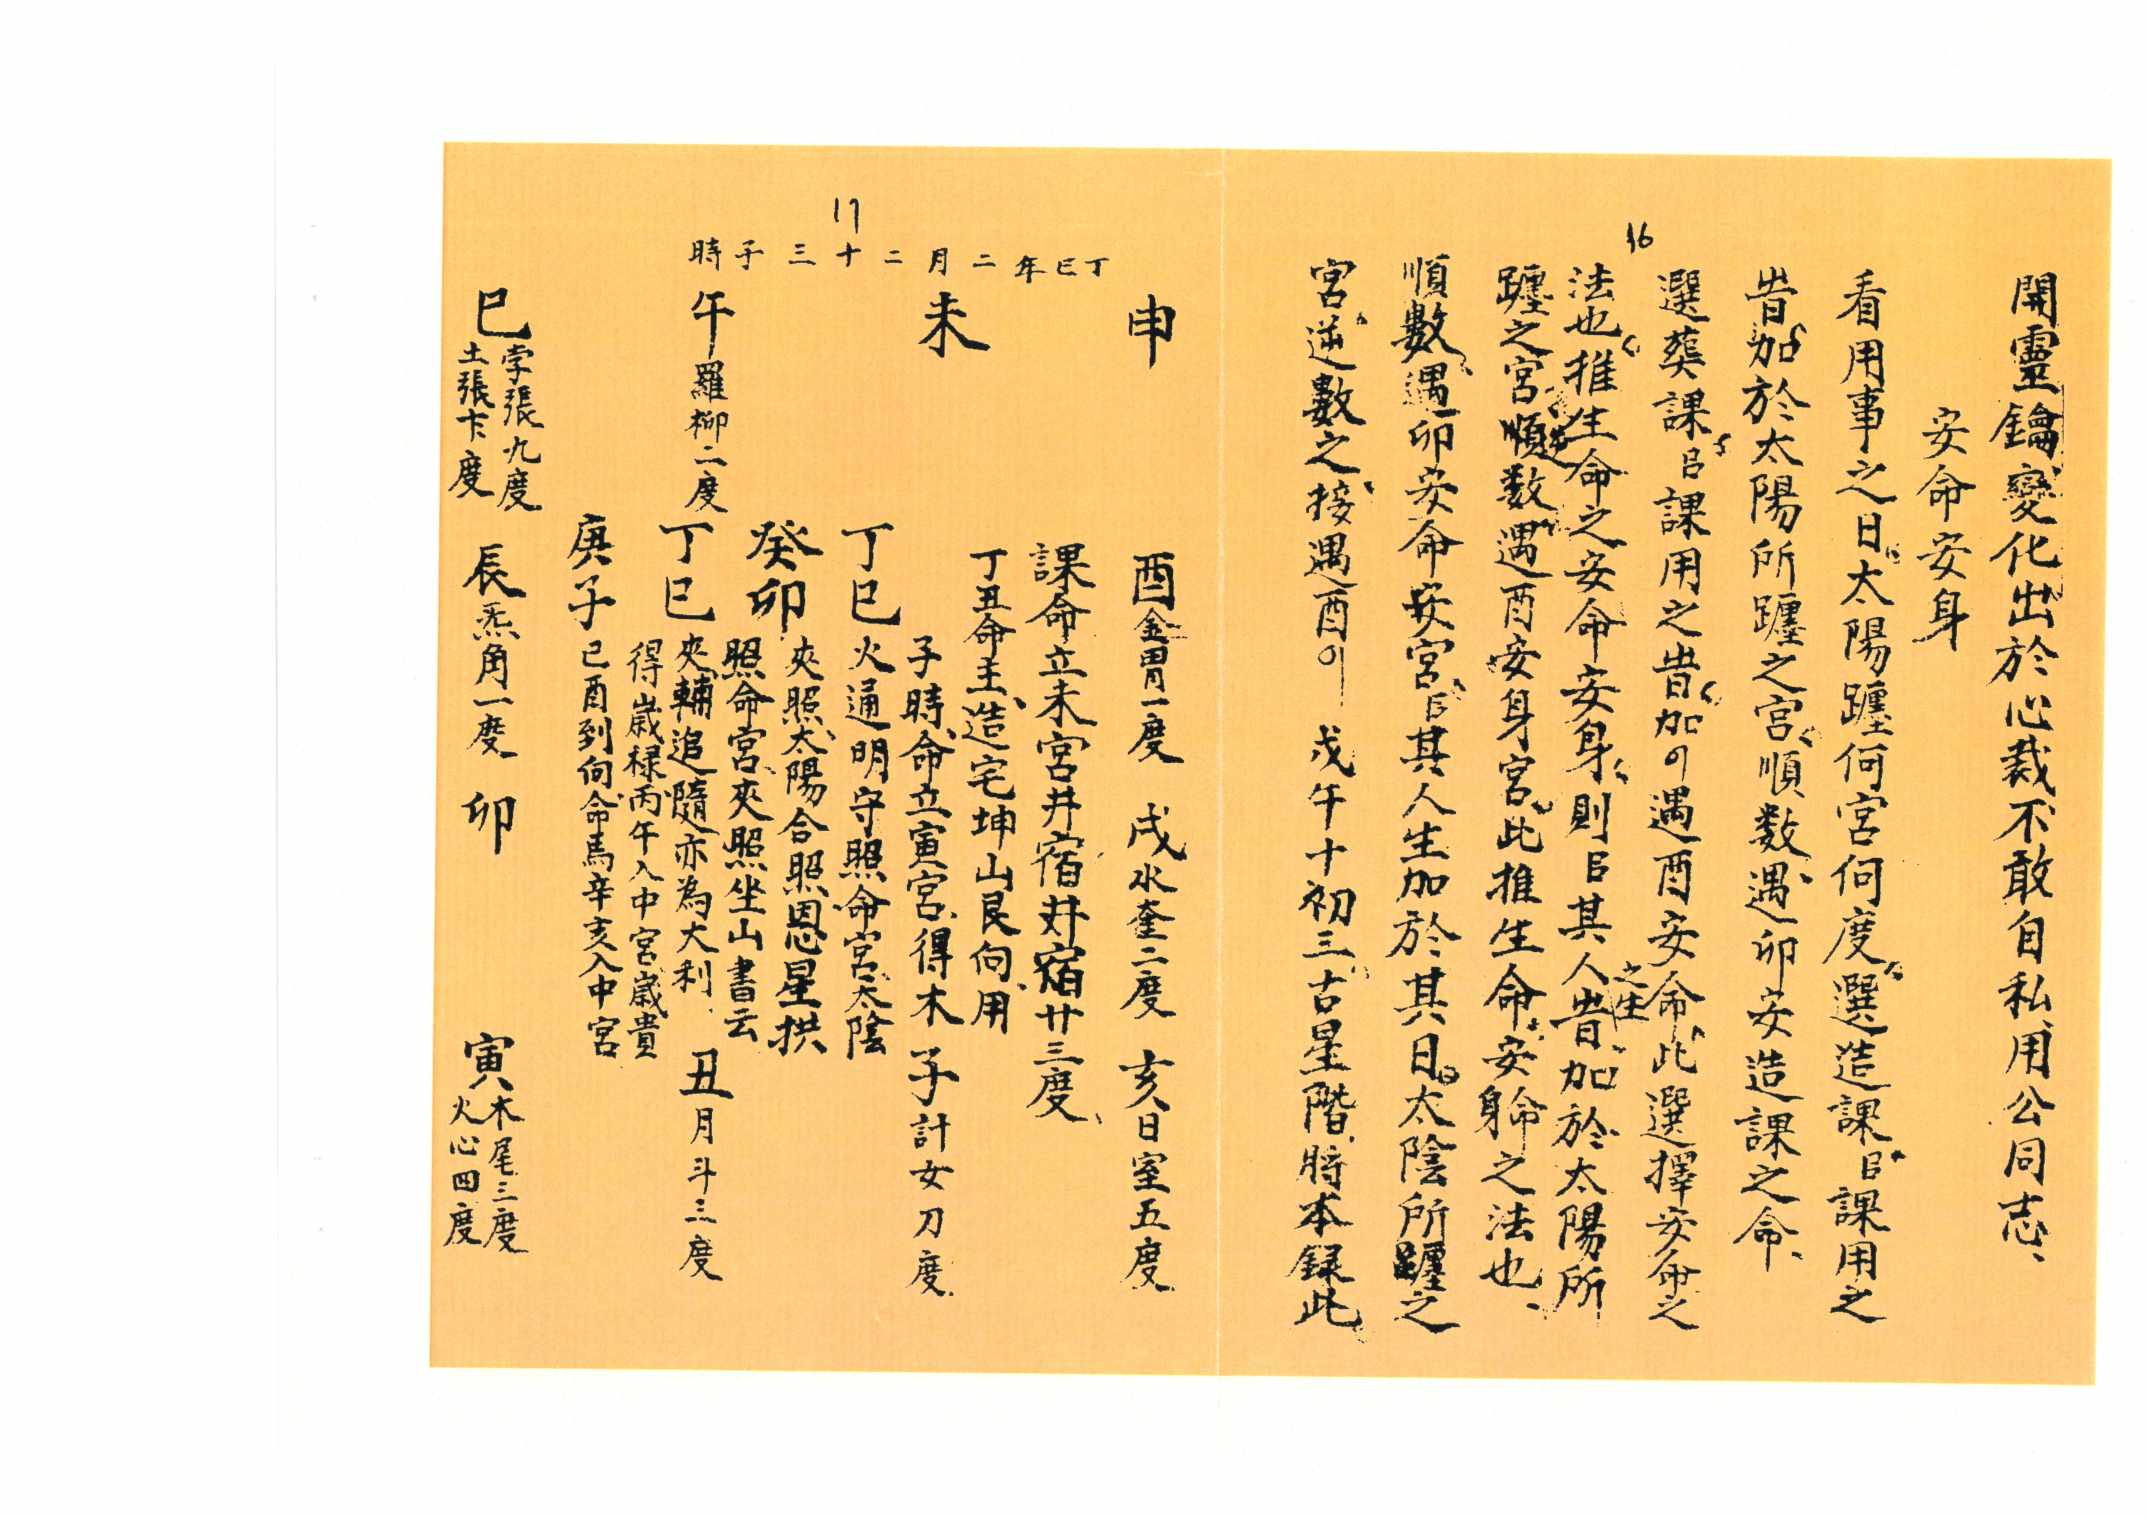 16
開靈鑰變化出於心裁不敢自私用公同志、
安命安身
看用事之日太陽躔何宮何度選造課㠯課用之
旹加於太陽所躔之宮順数遇卯安造課之命、
選葬課㠯課用之旹加の遇酉安命此選擇安命之
法也推生命之安命安身則㠯其人之生旹加於太陽所
躔之宮順数遇酉安身宮此推生命安身命之法也、
順數遇卯安命安宮㠯其人生加於其日太陰所躔之
宮逆數之接遇酉の 戊午十初三古星階將本録此
17
丁巳年二月二十三子時
申
酉金胃一度
戌水奎二度
亥日室五度
未
課命立未宮井宿井宿廿三度、
丁丑命主、造宅坤山艮向、用
子時、命立寅宮、得木
子計女刀度
丁巳 火通明守照命宮、太陰
癸卯 夾照、太陽合照恩星拱
照命宮、夾照坐山書云
午羅柳二度
丁巳 夾輔追隨亦為大利
丑月斗三度
得歲祿丙午入中宮歲貴
庚子 己酉到向、命馬辛亥入中宮
巳孛張九度
土張七度
辰炁角一度
卯
寅木尾三度
火心四度